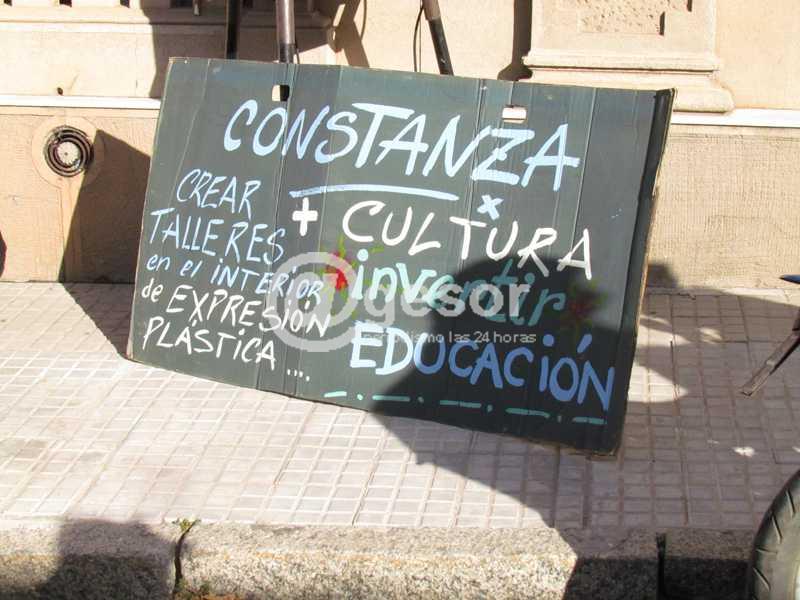 CONSTANZA
x
CREAR
TALLERES
en el INTERIOR
de EXPRESIÓN
PLÁSTICA....
+ CULTURA
inventir
EDUCACIÓN
@gesor
Periodismo las 24 horas